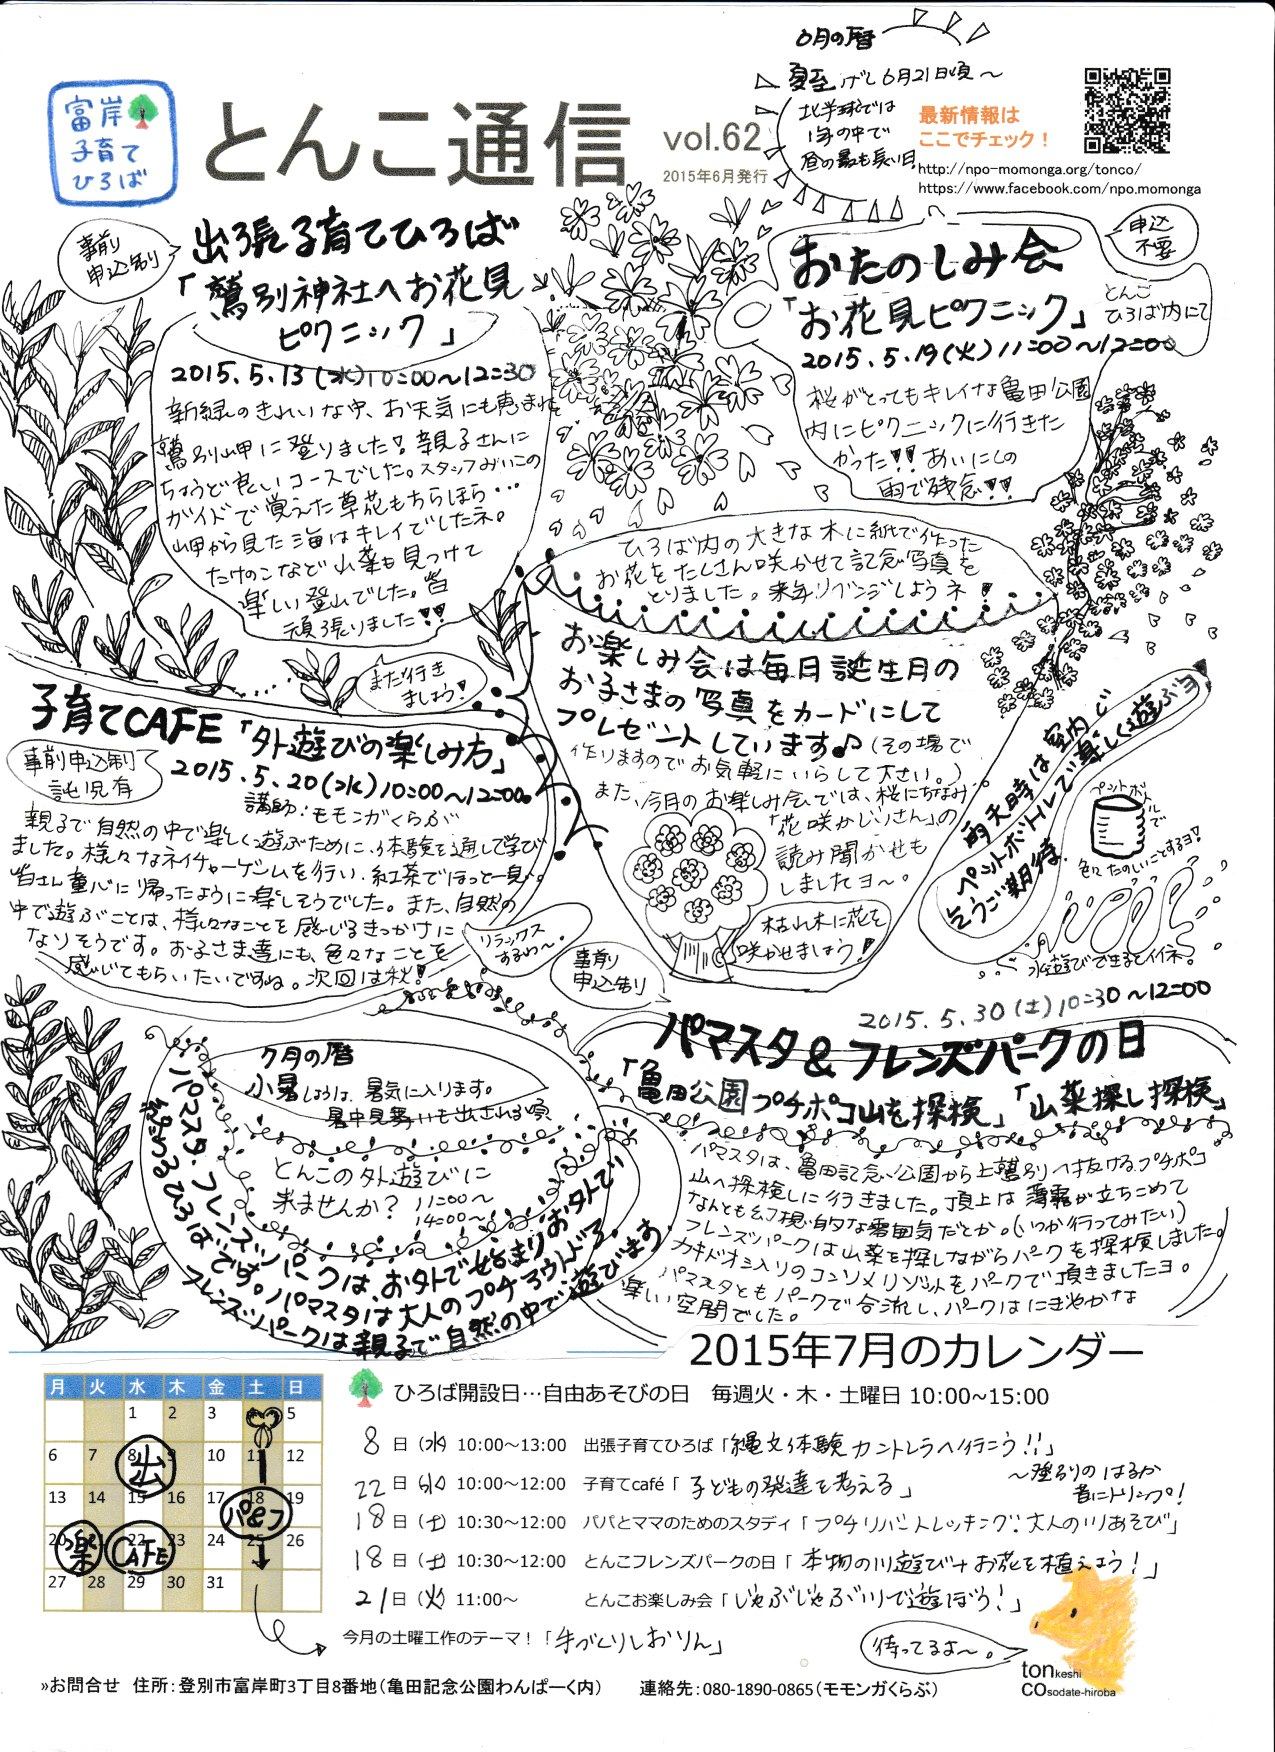 6月の暦
夏至 げし 6月21日頃〜
北半球では
1年の中で
昼の最も長い日
富岸
子育て
ひろば
とんこ通信
vol.62
2015年6月発行
最新情報は
ここでチェック！
http://npo-momonga.org/tonco/
https://www.facebook.com/npo.momonga
事前
申込制
出張子育てひろば
「鷲別神社へお花見
ピクニック」
2015.5.13(水)10:00〜12:30
新緑のきれいな中、お天気にも恵まれ
鷲別岬に登りました！親子さんに
ちょうど良いコースでした。スタッフみいこの
ガイドで覚えた草花もちらほら…
岬から見た海はキレイでしたネ。
たけのこなど山菜も見つけて
楽しい登山でした。皆
頑張りました!!
また行き
ましょう！
申込
不要
おたのしみ会
「お花見ピクニック」
とんこ
ひろば内にて
2015.5.19(火)11:00〜12:00
桜がとってもキレイな亀田公園
内にピクニックに行きた
かった!!あいにくの
雨で残念!!
ひろば内の大きな木に紙で作った
お花をたくさん咲かせて記念写真を
とりました。来年リベンジしようネ！
お楽しみ会は毎月誕生月の
お子さまの写真をカードにして
プレゼントしています♪(その場で
作りますのでお気軽にいらして下さい。)
また、今月のお楽しみ会では、桜にちなみ
「花咲かじいさん」の
読み聞かせも
しましたヨ〜。
枯れ木に花を
咲かせましょう！
雨天時は室内で
ペットボトルで楽しく遊ぶヨ
乞うご期待
ペットボトルで
色々たのしいことするヨ!
水遊びできるとイイネ。
子育てCAFE「外遊びの楽しみ方」
事前申込制
託児有
2015.5.20(水)10:00〜12:00
講師：モモンガくらぶ
親子で自然の中で楽しく遊ぶために、体験を通して学び
ました。様々なネイチャーゲームを行い、紅茶でほっと一息。
皆さん童心に帰ったように楽しそうでした。また、自然の
中で遊ぶことは、様々なことを感じるきっかけに
なりそうです。お子さま達にも、色々なことを
感じてもらいたいですね。次回は秋！
リラックス
するわ〜。
事前
申込制
2015.5.30(土)10:30〜12:00
パマスタ&フレンズパークの日
「亀田公園プチポコ山を探検」「山菜探し探検」
パマスタは、亀田記念公園から上鷲別へ抜けるプチポコ
山へ探検しに行きました。頂上は濃霧が立ちこめて
なんとも幻想的な雰囲気だとか。(いつか行ってみたい)
フレンズパークは山菜を探しながらパークを探検しました。
カキドオシ入りのコンソメリゾットをパークで頂きましたヨ。
パマスタともパークで合流し、パークはにぎやかな
楽しい空間でした。
7月の暦
小暑 しょうしょ 暑気に入ります。
暑中見舞いも出される頃
とんこの外遊びに
来ませんか？ 11:00〜
14:00〜
パマスタ、フレンズパークは、お外で始まりお外で
終わるひろばです。パマスタは大人のプチアウトドア、
フレンズパークは親子で自然の中で遊びます。
2015年7月のカレンダー
月 火 水 木 金 土 日
1 2 3 5
6 7 8 9 10 11 12
13 14 15 16 17 18 19
20 21 22 23 24 25 26
27 28 29 30 31
出
パ&フ
楽
CAFE
ひろば開設日…自由あそびの日　毎週火・木・土曜日 10:00～15:00
8日（水）10:00～13:00　出張子育てひろば「縄文体験カントレラへ行こう!!」
〜登別のはるか
昔にトリップ！
22日（水）10:00～12:00　子育てcafé「子どもの発達を考える」
18日（土）10:30～12:00　パパとママのためのスタディ「プチリバートレッキング！大人の川あそび」
18日（土）10:30～12:00　とんこフレンズパークの日「本物の川遊び+お花を植えよう！」
21日（火）11:00～　とんこお楽しみ会「じゃぶじゃぶ川で遊ぼう！」
今月の土曜工作のテーマ！「手づくりしおりん」
待ってるよ〜。
tonkeshi
COsodate-hiroba
»お問合せ　住所：登別市富岸町3丁目8番地（亀田記念公園わんぱーく内）　連絡先：080-1890-0865（モモンガくらぶ）